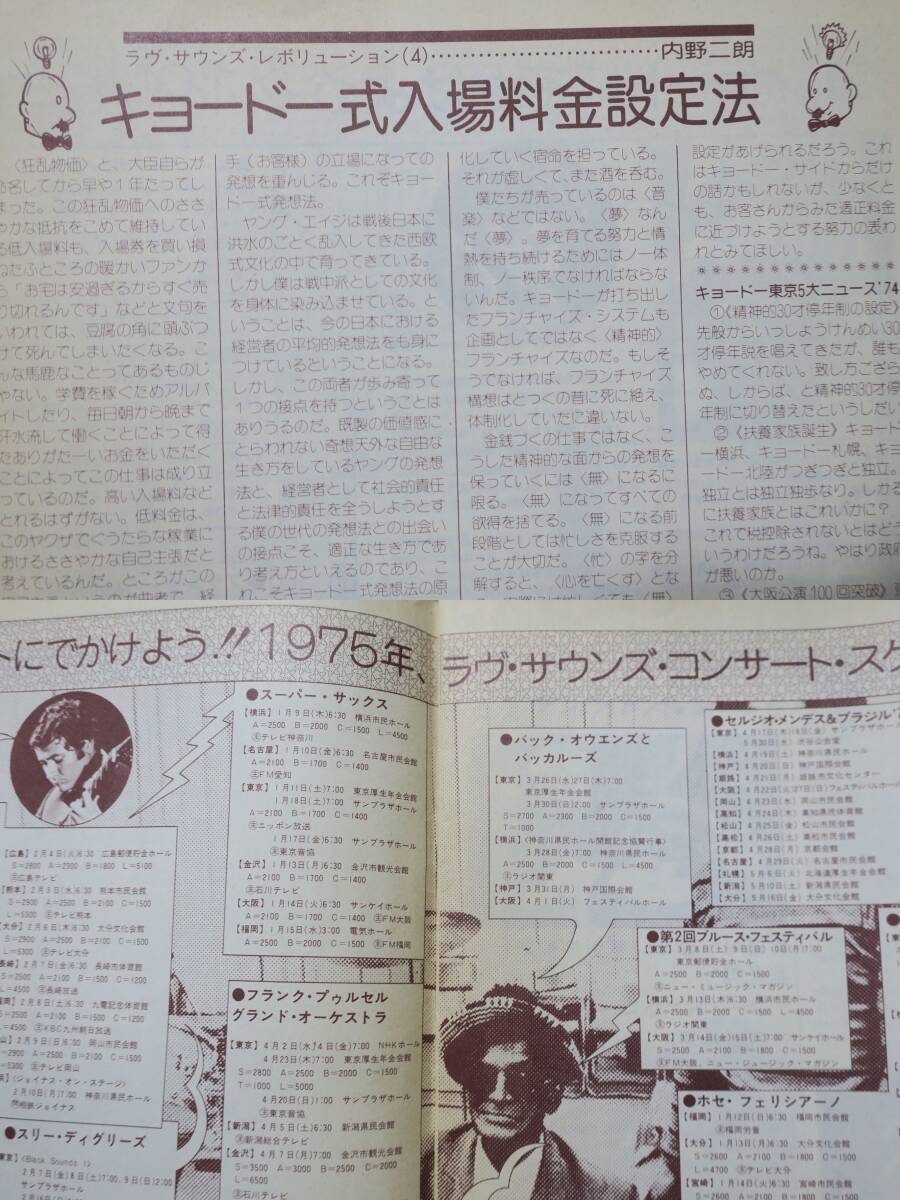 ラヴ・サウンズ・レボリューション(4)……………………………内野二朗
キョードー式入場料金設定法
〈狂乱物価〉と、大臣自らが
命名してから早や1年たってし
まった。この狂乱物価へのささ
やかな抵抗をこめて維持してい
る低入場料も、入場券を買い損
ねたふところの暖かいファンか
ら「お宅は安過ぎるからすぐ売
り切れるんです」などと文句を
いわれては、豆腐の角に頭ぶつ
けて死んでしまいたくなる。こ
んな馬鹿なことってあるものじ
ゃない。学費を稼ぐためアルバ
イトしたり、毎日朝から晩まで
汗水流して働くことによって得
たありがたーいお金をいただく
ことによってこの仕事は成り立
っているのだ。高い入場料など
とれるはずがない。低料金は、
このヤクザでぐうたらな稼業に
おけるささやかな自己主張だと
考えているんだ。ところがこの
手（お客様）の立場になっての
発想を重んじる。これぞキョー
ドー式発想法。
ヤング・エイジは戦後日本に
洪水のごとく乱入してきた西欧
式文化の中で育ってきている。
しかし僕は戦中派としての文化
を身体に染み込ませている。と
いうことは、今の日本における
経営者の平均的発想法をも身に
つけているということになる。
しかし、この両者が歩み寄って
1つの接点を持つということは
ありうるのだ。既製の価値感に
とらわれない奇想天外な自由な
生き方をしているヤングの発想
法と、経営者として社会的責任
と法律的責任を全うしようとす
る僕の世代の発想法との出会い
の接点こそ、適正な生き方であ
り考え方といえるのであり、こ
れこそキョードー式発想法の原
化していく宿命を担っている。
それが虚しくて、また酒を呑む。
僕たちが売っているのは〈音
楽〉などではない。〈夢〉なん
だ〈夢〉。夢を育てる努力と情
熱を持ち続けるためにはノー体
制、ノー秩序でなければならな
いんだ。キョードーが打ち出し
たフランチャイズ・システムも
企画としてではなく〈精神的〉
フランチャイズなのだ。もしそ
うでなければ、フランチャイズ
構想はとっくの昔に死に絶え、
体制化していたに違いない。
金銭づくの仕事ではなく、こ
うした精神的な面からの発想を
保っていくには〈無〉になるに
限る。〈無〉になってすべての
欲得を捨てる。〈無〉になる前
段階としては忙しさを克服する
ことが大切だ。〈忙〉の字を分
解すると、〈心を亡くす〉とな
設定があげられるだろう。これ
はキョードー・サイドからだけ
の話かもしれないが、少なくと
も、お客さんからみた適正料金
に近づけようとする努力の表わ
れとみてほしい。
キョードー東京5大ニュース'74
①《精神的30才停年制の設定》
先般からいっしょうけんめい30
才停年説を唱えてきたが、誰も
やめてくれない。致し方ござら
ぬ、しからば、と精神的30才停
年制に切り替えたというしだい
②《扶養家族誕生》キョード
ー横浜、キョードー札幌、キョ
ードー北陸がつぎつぎと独立。
独立とは独立独歩なり。しかる
に扶養家族とはこれいかに？
これで税控除されないとはどう
いうわけだろうね。やはり政府
が悪いのか。
③《大阪公演100回突破》
トにでかけよう!!1975年、ラヴ・サウンズ・コンサート・スケ
【広島】2月4日(火)6:30 広島郵便貯金ホール
S=2800 A=2300 B=1800 L=5100
広島テレビ
【熊本】2月5日(水)6:30 熊本市民会館
S=2900 A=2500 B=2100 C=1500
L=5300 テレビ熊本
【大分】2月6日(木)6:30 大分文化会館
S=2900 A=2500 B=2100 C=1500
L=5300 テレビ大分
【長崎】2月7日(金)6:30 長崎市体育館
S=2500 A=2100 B=1500 C=1200
L=4500 長崎放送
2月8日(土)6:30 九電記念体育館
S=2500 A=2100 B=1500 C=1200
L=4500 KBC九州朝日放送
2月9日(日)6:30 岡山市民会館
S=2900 A=2500 B=2100 C=1500
L=5300 テレビ岡山
(ジョイナス・オン・ステージ)
2月10日(月)7:00 神奈川県民ホール
相鉄ジョイナス
●スリー・ディグリーズ
【東京】〈Black Sounds 1〉
2月7日(金)8日(土)7:00、9日(日)2:00
サンプラザホール
●スーパー・サックス
【横浜】1月9日(木)6:30 横浜市民ホール
A=2500 B=2000 C=1500 L=4500
テレビ神奈川
【名古屋】1月10日(金)6:30 名古屋市民会館
A=2100 B=1700 C=1400
FM愛知
【東京】1月11日(土)7:00 東京厚生年金会館
1月18日(土)7:00 サンプラザホール
A=2100 B=1700 C=1400
ニッポン放送
1月17日(金)6:30 サンプラザホール
東京音協
【金沢】1月13日(月)6:30 金沢市観光会館
A=2100 B=1700 C=1400
石川テレビ
【大阪】1月14日(火)6:30 サンケイホール
A=2100 B=1700 C=1400 FM大阪
【福岡】1月15日(水)3:00 電気ホール
A=2500 B=2000 C=1500 FM福岡
●フランク・プゥルセル
グランド・オーケストラ
【東京】4月2日(水)4日(金)7:00 NHKホール
4月23日(木)7:00 東京厚生年金会館
S=2800 A=2500 B=2000 C=1500
T=1000 L=5000
4月20日(日)1:00 サンプラザホール
東京音協
【新潟】4月5日(土)6:30 新潟県民会館
新潟総合テレビ
【金沢】4月7日(月)7:00 金沢市観光会館
S=3500 A=3000 B=2500 C=2000
L=6500
石川テレビ
●バック・オウエンズと
バッカルーズ
【東京】3月26日(水)27日(木)7:00
東京厚生年金会館
3月30日(日)2:00 サンプラザホール
S=2700 A=2300 B=2000 C=1500
T=1000
【横浜】〈神奈川県民ホール開館記念協賛行事〉
3月28日(金)7:00 神奈川県民ホール
A=2500 B=2000 C=1500 L=4500
ラジオ関東
【神戸】3月31日(月) 神戸国際会館
【大阪】4月1日(火) フェスティバルホール
●セルジオ・メンデス&ブラジル'7
【東京】4月17日(木)18日(金) サンプラザホー
5月30日(水) 渋谷公会堂
【横浜】4月19日(土) 神奈川県民ホール
【神戸】4月20日(日) 神戸国際会館
【姫路】4月21日(月) 姫路市文化センター
【大阪】4月22日(火)27日(日)フェスティバルホール
【岡山】4月23日(水) 岡山市民会館
【高知】4月24日(木) 高知県民体育館
【松山】4月25日(金) 松山市民会館
【高松】4月26日(土) 高松市民会館
【京都】4月28日(月) 京都会館
【名古屋】4月29日(火) 名古屋市民会館
【札幌】5月6日(火) 北海道厚生年金会館
【新潟】5月10日(土) 新潟県民会館
【大分】5月16日(土) 大分文化会館
●第2回ブルース・フェスティバル
【東京】3月8日(土)9日(日)10日(月)7:00
東京郵便貯金ホール
A=2500 B=2000 C=1500
ニュー・ミュージック・マガジン
【横浜】3月13日(木)6:30 横浜市民ホール
A=2500 B=2000 C=1500 L=4500
ラジオ関東
【大阪】3月14日(金)15日(土)7:00 サンケイホール
S=2500 A=2100 B=1800 C=1500
FM大阪、ニュー・ジュージック・マガジン
●ホセ・フェリシアーノ
【福岡】1月12日(日)6:30 福岡市民会館
福岡労音
【大分】1月13日(月)6:30 大分文化会館
S=2500 A=2100 B=1800 C=1500
L=4700 テレビ大分
【宮崎】1月14日(火)6:30 宮崎市民会館